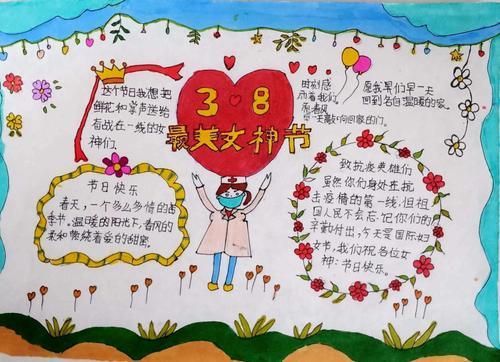 3·8
最美女神节
这个节日我想把
鲜花和掌声送给
奋战在一线的女
神们.
时刻感
动着我们.
愿春风
早一天
愿英雄们早一天
回到各自温暖的家.
节日快乐
春天,一个多么多情的
季节。温暖的阳光下,春风的
柔和燃烧着爱的甜蜜.
致抗疫英雄们
虽然你们身处在抗
击疫情的第一线,但祖
国人民不会忘记你们的
辛勤付出,今天是国际妇
女节,我们祝各位女
神:节日快乐。